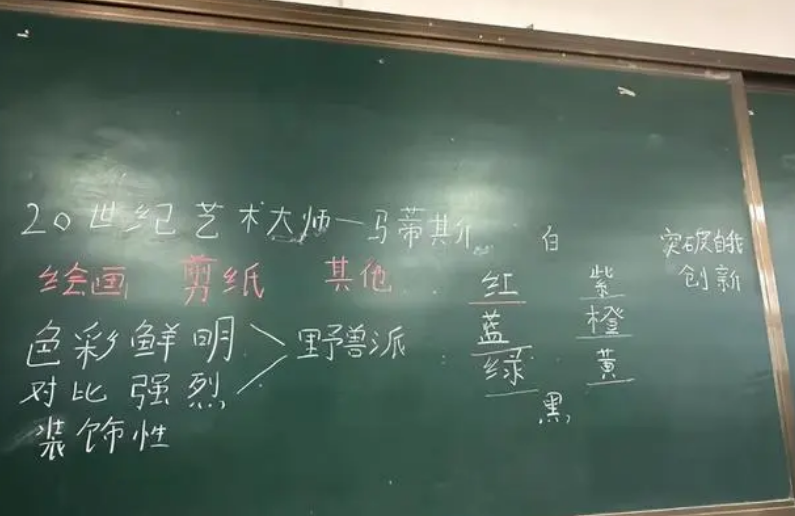 20世纪艺术大师一马蒂其尔
绘画 剪纸 其他
色彩鲜明
对比强烈
装饰性
野兽派
白
红 紫
蓝 橙
绿 黄
黑
突破自我
创新